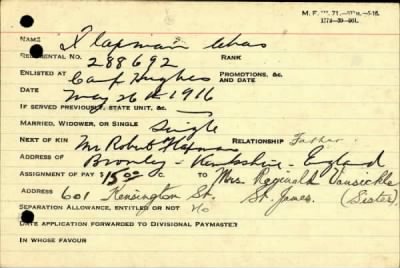 M. F. W. 71.
1772-39-961.
NAME Flapman Chas
REGIMENTAL No. 288692 RANK
ENLISTED AT Camp Hughes PROMOTIONS, &C. AND DATE
DATE May 26th 1916
IF SERVED PREVIOUSLY, STATE UNIT, &C.
MARRIED, WIDOWER, OR SINGLE Single
NEXT OF KIN Mr Robert Flapman RELATIONSHIP Father
ADDRESS OF Bromley - Kentshire - England
ASSIGNMENT OF PAY $ 15.00 C. TO Mrs. Reginald Vansickle
ADDRESS 601 Kensington St. St. James. (Sister)
SEPARATION ALLOWANCE, ENTITLED OR NOT No
DATE APPLICATION FORWARDED TO DIVISIONAL PAYMASTER
IN WHOSE FAVOUR